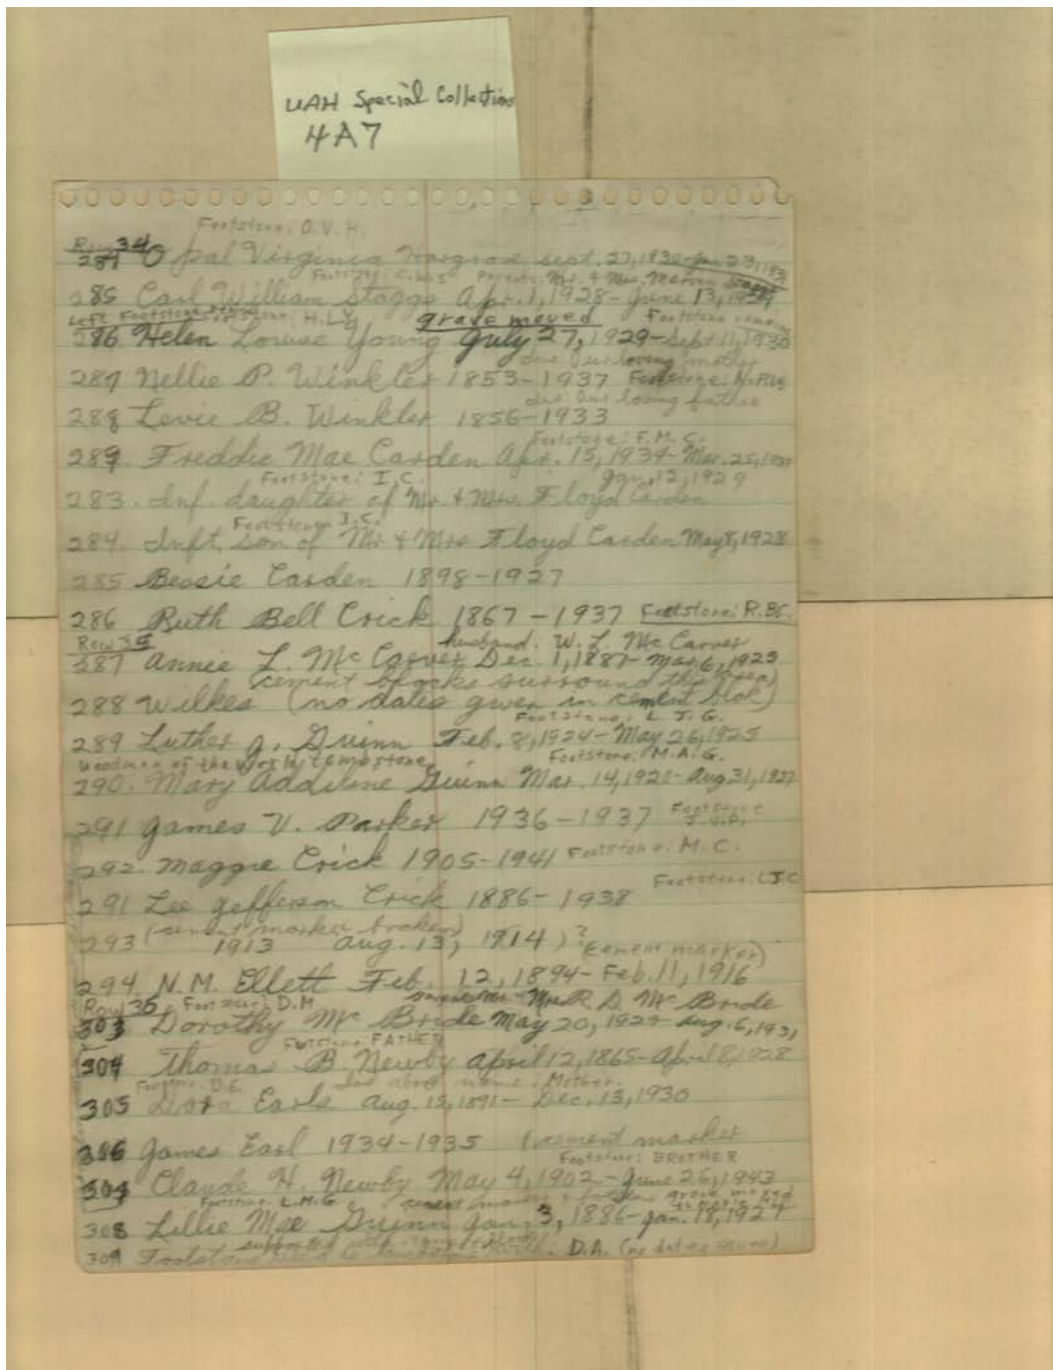 UAH Special Collections
4A7
Footstone: O.V.H.
Row 34
284 Opal Virginia Hargrove Sept. 27, 1930-Jan 23, 193
Footstone: C.W.S Parents: Mr. & Mrs. Marvin Staggs
285 Carl William Staggs Apr. 1, 1928- June 13, 1929
Left Footstone H.L.Y grave moved Footstone remains
286 Helen Louise Young July 27, 1929-Sept 11, 1930
ins: Our loving mother
287 Nellie P. Winkler 1853-1937 Footstone: N.P.W.
ins: Our loving father
288 Levie B. Winkler 1856-1933
Footstone: F.M.C.
289. Freddie Mae Carden Apr. 15, 1934- Mar. 25, 19
Footstone: I.C. Jan. 12, 1929
283. Inf. daughter of Mr. & Mrs. Floyd Carden
Footstone I.C.
284. Inft. son of Mr & Mrs Floyd Carden May 8, 1928
285 Bessie Carden 1898-1927
286 Ruth Bell Crick 1867-1937 Footstone: R.B.C.
Row 35 husband. W. L. McCarver
287 Annie L. McCarver Dec. 1, 1887- Mar. 6, 1925
(cement blocks surround this area)
288 Wilkes (no dates given in cement blok)
Footstone: L. J. G.
289 Luther J. Guinn Feb. 8, 1924- May 26, 1925
Woodmen of the World tombstone Footstone: M.A.G.
290. Mary Addiline Guinn Mar. 14, 1921- Aug. 31, 1927
291 James V. Parker 1936-1937 Footstone
J.V.P.
292. Maggie Crick 1905-1941 Footstone: M.C.
Footstone: LJC
291 Lee Jefferson Crick 1886-1938
(cement marker broken)
293 1913 Aug. 13, 1914)?
(cement marker)
294 N.M. Ellett Feb. 12, 1894- Feb. 11, 1916
Row 36 Footstone: D.M Mr. Mrs. R. D. McBride
303 Dorothy McBride May 20, 1929- Aug. 6, 1931
Footstone: FATHER
304 Thomas B. Newby April 12, 1865- April 8, 1928
Footstone: D.E. Ins above name: Mother.
305 Dora Earls Aug. 15, 1891- Dec. 13, 1930
306 James Earl 1934-1935 (cement marker
Footstone: BROTHER
Claude H. Newby May 4, 1902- June 26, 1943
Footstone: L.M.G. cement grave
308 Lillie Mae Guinn Jan. 3, 1886- Jan. 18, 1927
309 Footstone D.A. (no dates given)